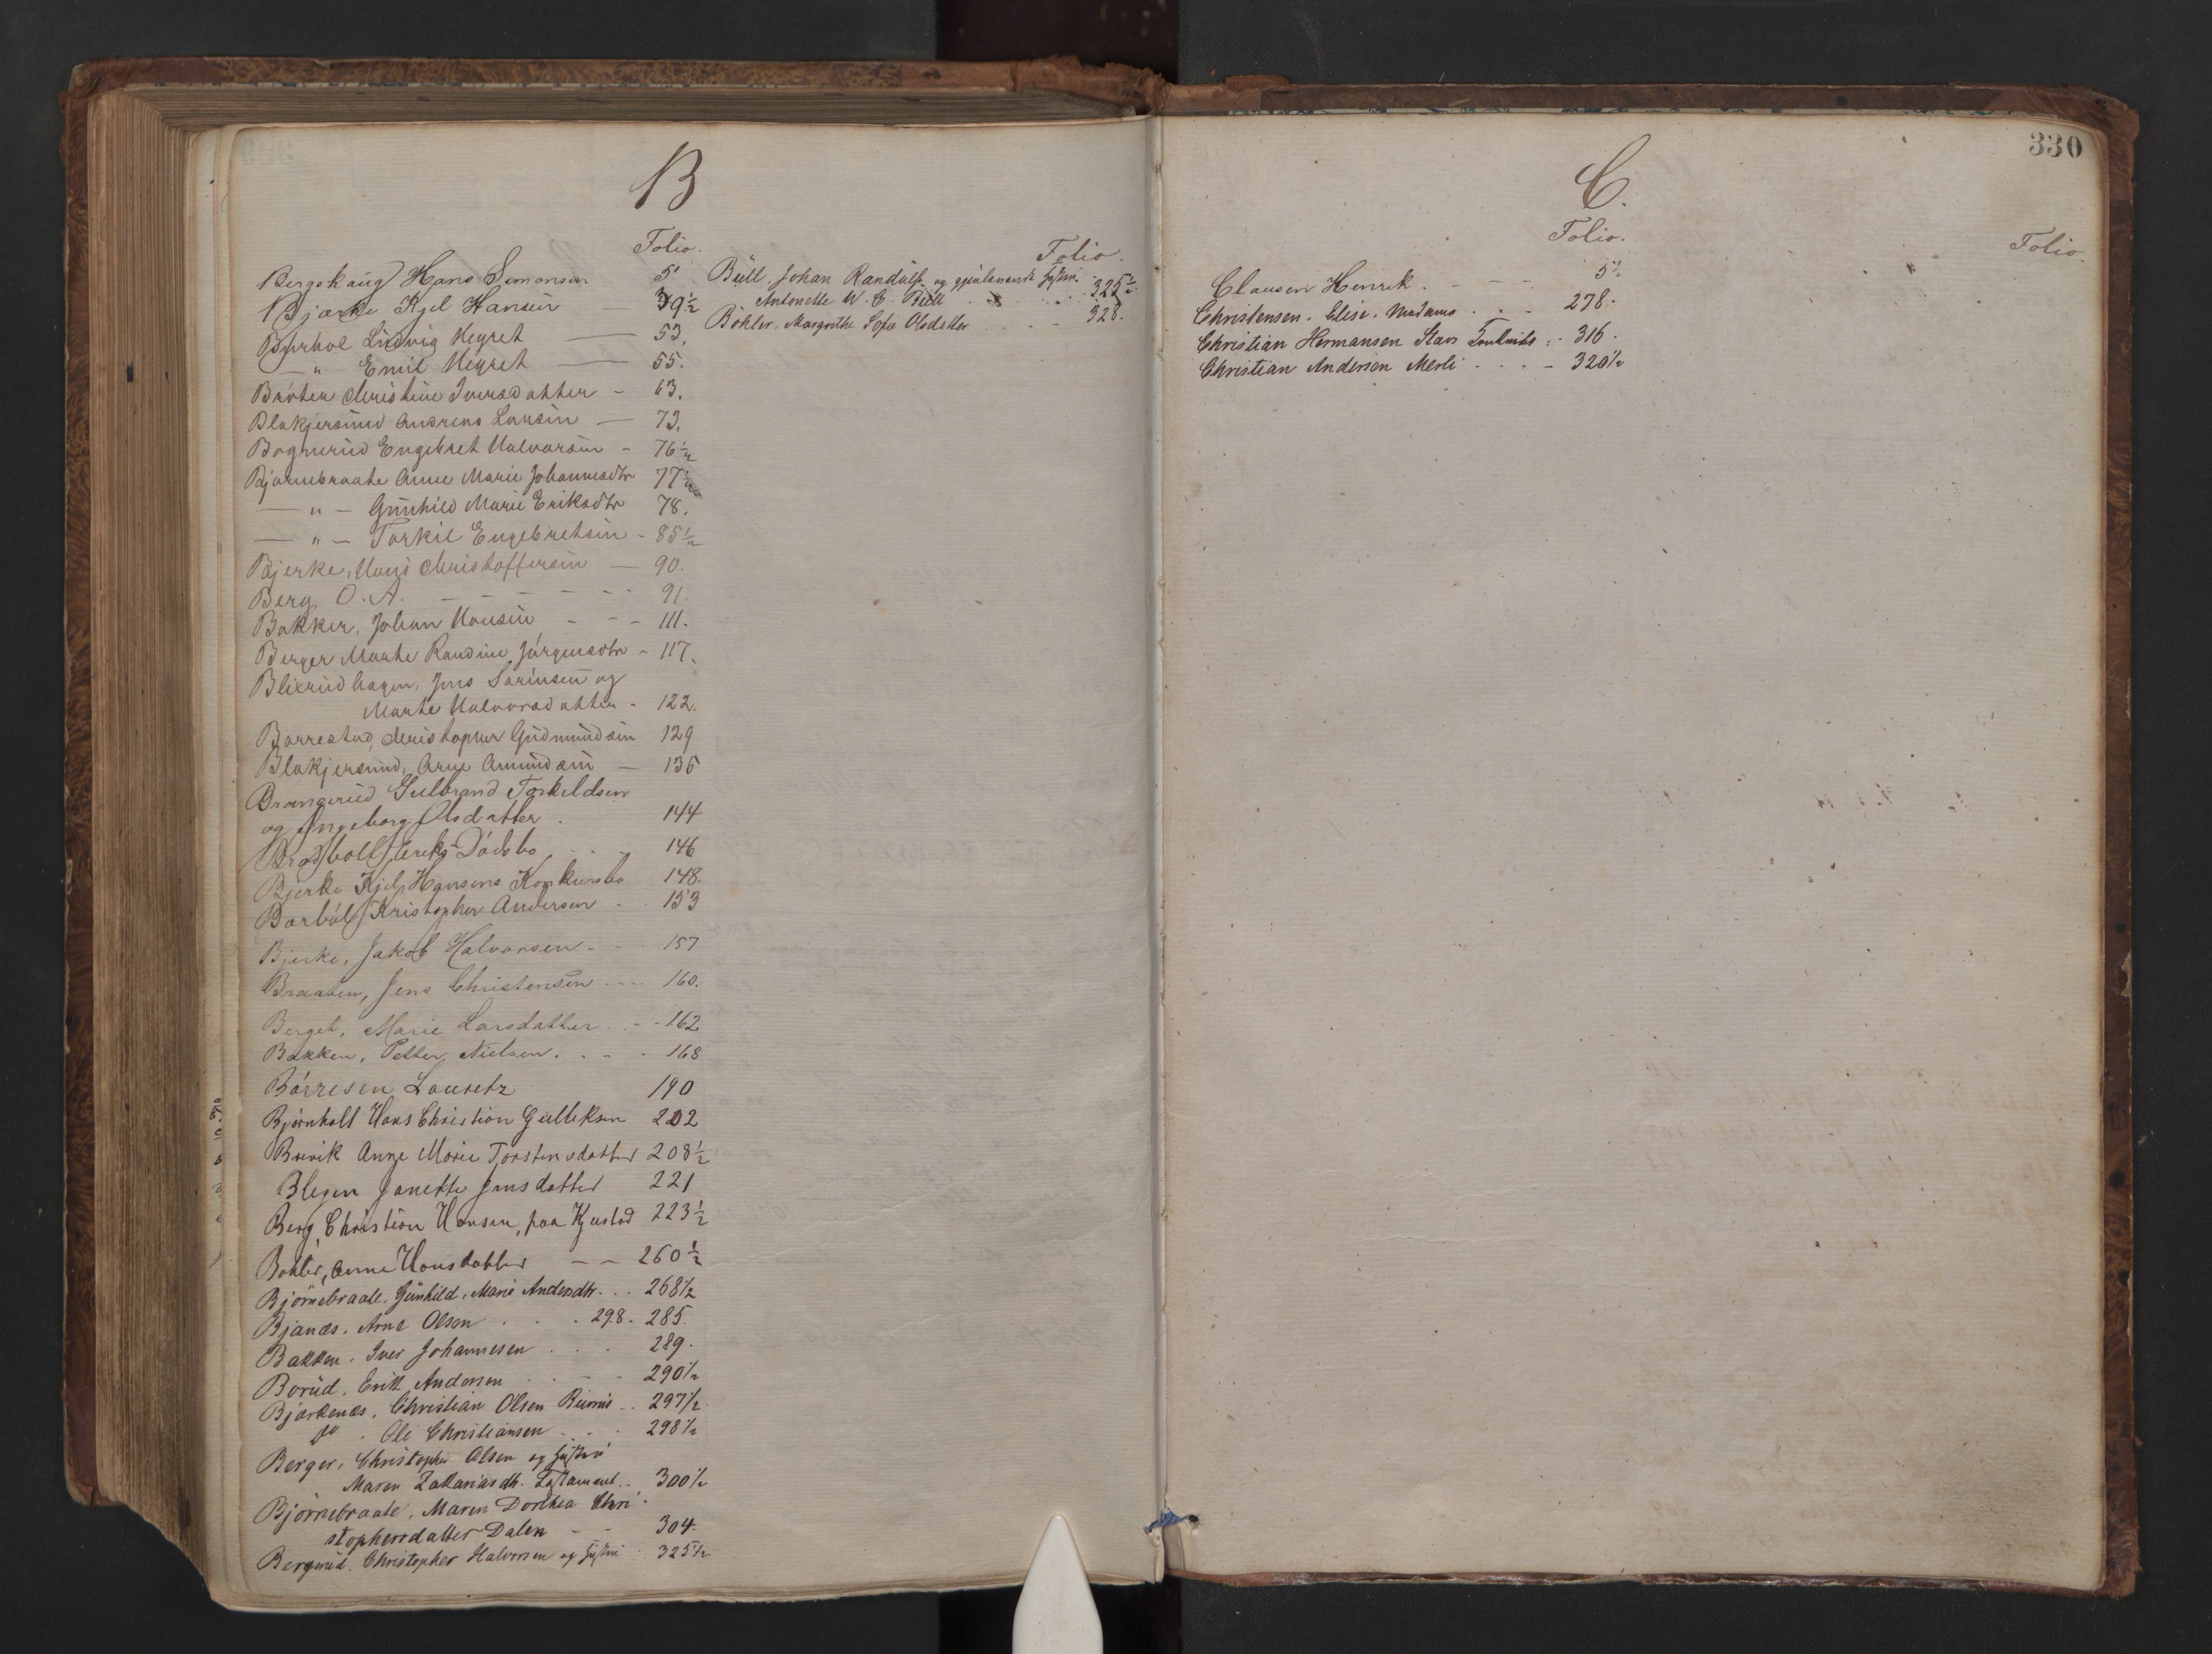 B
Folio.
Bergskaug Hans Simonsen 5
Bjerke Kjel Hansen — 39½
Byrhol Ludvig Negret — 53.
— " Emil Negret — 55.
Bråten Christine Iversdatter – 63.
Blakjersund Andreas Larsen — 73.
Bognerud Engebret Halvorsen – 76½
Bjørnebraate Anne Marie Johannesdtr 77½
— " — Gunhild Marie Eriksdtr 78.
— " — Torkil Engebretsen – 85½
Bjerke, Hans Christoffersen — 90.
Berg O. A. – – – – – 91.
Bakker, Johan Hansen – – – 111.
Berger Marthe Randine Jørgensdtr – 117.
Blixrudhagen, Jens Sørensen og
Marthe Halvorsdatter – 122.
Borrestad, Christopher Gudmundsen 129
Blakjersund, Arne Amundsen — 135
Brangerud Gulbrand Torkeldsen
og Ingeborg Olsdatter . 144
Eriks Dødsbo . . 146
Bjerke Kjel Hansens Konkursbo 148.
Kristopher Andersen – 153
Bjerke, Jakob Halvorsen – – 157
Braaten, Jens Christensen .... 160.
Berget, Marie Larsdatter . – – 162
Bakken, Petter Nielsen . . . . 168
Børresen Lauretz 190
Bjørnholt Hans Christian Gulleksen 202
Brevik Anne Marie Torstensdatter 208½
Blegen Janette Jensdatter 221
Berg, Christian Hansen, paa Kjustad 223½
Bøhler, Anne Hansdatter – – 260½
Bjørnebraate, Gunhild, Marie Andersdtr. . . 268½
Bjanæs, Arne Olsen . . . 298. 285.
Bakken, Iver Johannesen . . . 289.
Borud, Erik Andersen . – – 290½
Bjerkenæs, Christian Olsen . . 297½
do . Ole Christiansen . . . 298½
Berger, Christopher Olsen og Hustru
Maren Zakariasdtr. Testament . . 300½
Bjørnebraate, Maren Dorthea Chri-
stophersdatter Dalen – – 304.
Bergerud, Christopher Halvorsen og Hustru . 325½
Folio.
Bull, Johan Randulf og gjenlevende Hustru
Antonette W. C. Bull . . . . . 325½
Bøhler, Margrethe Sofie Olsdatter . . – 328.
330
C.
Folio.
Folio.
Clausen Henrik . – – – 5½
Christensen, Elise, Madame . . – 278.
Christian Hermansen Staos : – 316.
Christian Andersen Merli . . . – 320½